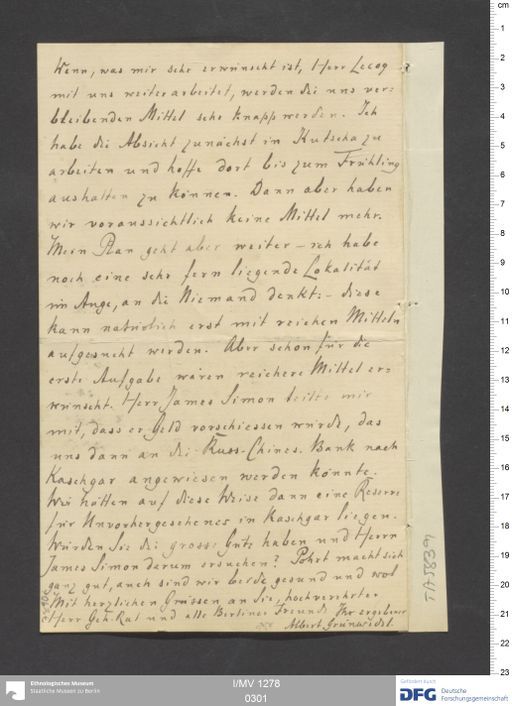 Wenn, was mir sehr erwünscht ist, Herr Lecoq
mit uns weiterarbeitet, werden die uns ver=
bleibenden Mittel sehr knapp werden. Ich
habe die Absicht zunächst in Kutscha zu
arbeiten und hoffe dort bis zum Frühling
aushalten zu können. Dann aber haben
wir voraussichtlich keine Mittel mehr.
Mein Plan geht aber weiter – ich habe
noch eine sehr fern liegende Lokalität
im Auge, an die Niemand denkt: – diese
kann natürlich erst mit reichen Mitteln
aufgesucht werden. Aber schon für die
erste Aufgabe wären reichere Mittel er=
wünscht. Herr James Simon teilte mir
mit, dass er Geld vorschiessen würde, das
uns dann an die Russ.-Chines. Bank nach
Kaschgar angewiesen werden könnte.
Wir hätten auf diese Weise dann eine Reserve
für Unvorhergesehenes in Kaschgar liegen.
Würden Sie die grosse Güte haben und Herrn
James Simon darum ersuchen? Pohrt macht sich
ganz gut, auch sind wir beide gesund und wol
Mit herzlichen Grüssen an Sie, hochverehrter
Herr Geh. Rat und alle Berliner Freunde Ihr ergebener
Albert Grünwedel.
cm
1
2
3
4
5
6
7
8
9
10
11
12
13
14
15
16
17
18
19
20
21
22
23
Ethnologisches Museum
Staatliche Museen zu Berlin
I/MV 1278
0301
Gefördert durch
DFG
Deutsche
Forschungsgemeinschaft